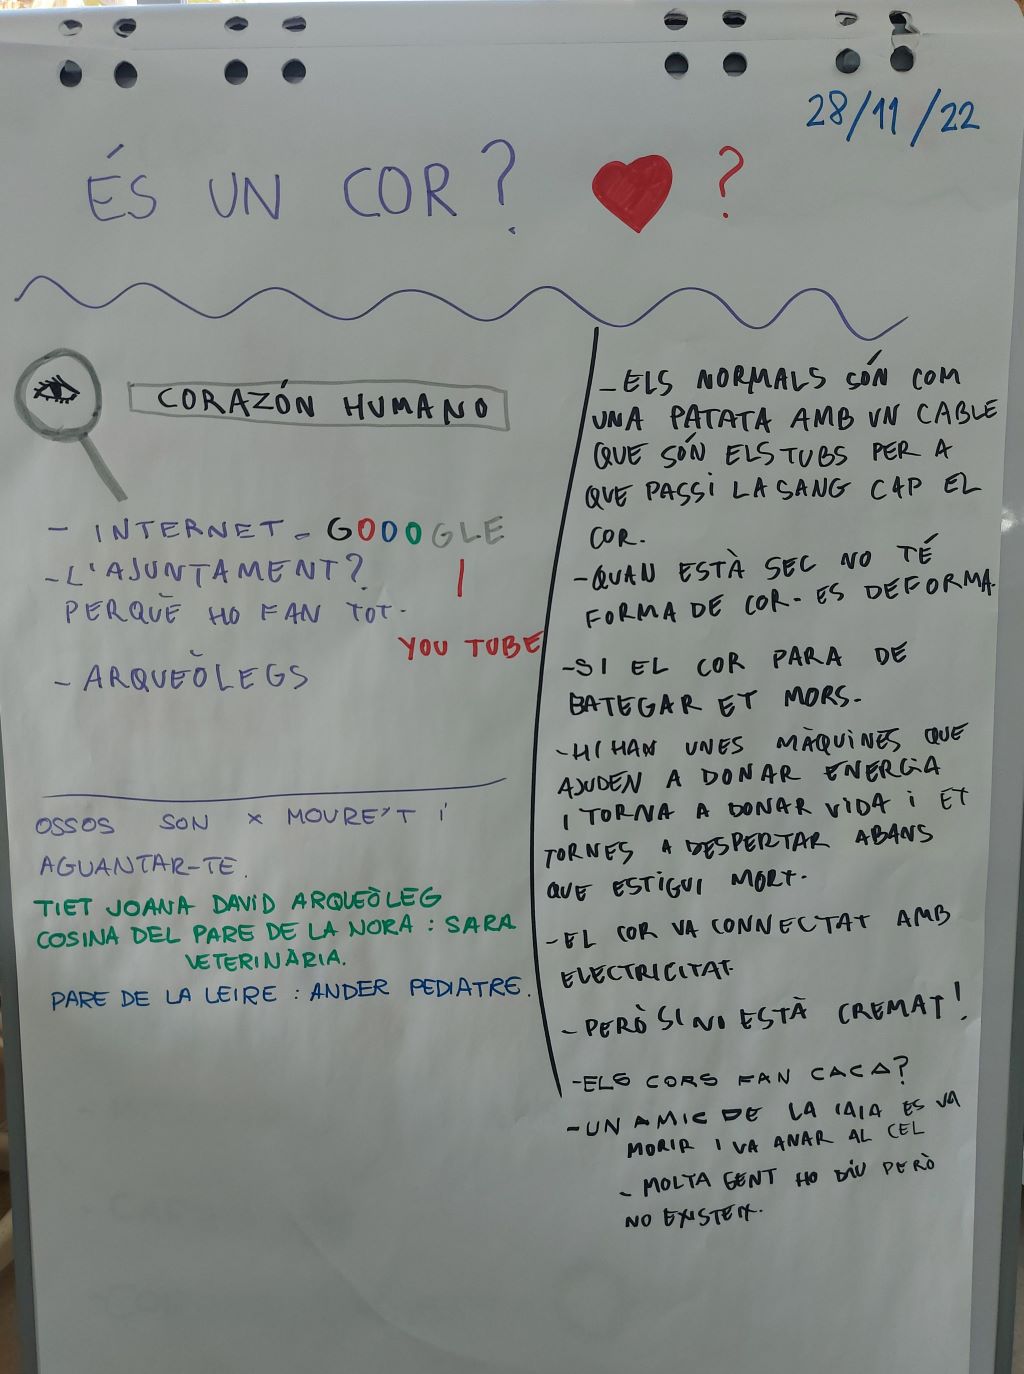 28/11/22
ÉS UN COR? ?
CORAZÓN HUMANO
- INTERNET - GOOOGLE
- L'AJUNTAMENT? |
PERQUÈ HO FAN TOT.
YOU TUBE
- ARQUEÒLEGS
OSSOS SON × MOURE'T i
AGUANTAR-TE.
TIET JOANA DAVID ARQUEÒLEG
COSINA DEL PARE DE LA NORA : SARA
VETERINÀRIA.
PARE DE LA LEIRE : ANDER PEDIATRE.
- ELS NORMALS SÓN COM
UNA PATATA AMB UN CABLE
QUE SÓN ELS TUBS PER A
QUE PASSI LA SANG CAP EL
COR.
- QUAN ESTÀ SEC NO TÉ
FORMA DE COR - ES DEFORMA.
- SI EL COR PARA DE
BATEGAR ET MORS.
- HI HAN UNES MÀQUINES QUE
AJUDEN A DONAR ENERGIA
I TORNA A DONAR VIDA i ET
TORNES A DESPERTAR ABANS
QUE ESTIGUI MORT.
- EL COR VA CONNECTAT AMB
ELECTRICITAT
- PERÒ SI NO ESTÀ CREMAT!
- ELS CORS FAN CACA?
- UN AMIC DE LA IAIA ES VA
MORIR I VA ANAR AL CEL
- MOLTA GENT HO DIU PERÒ
NO EXISTEIX.